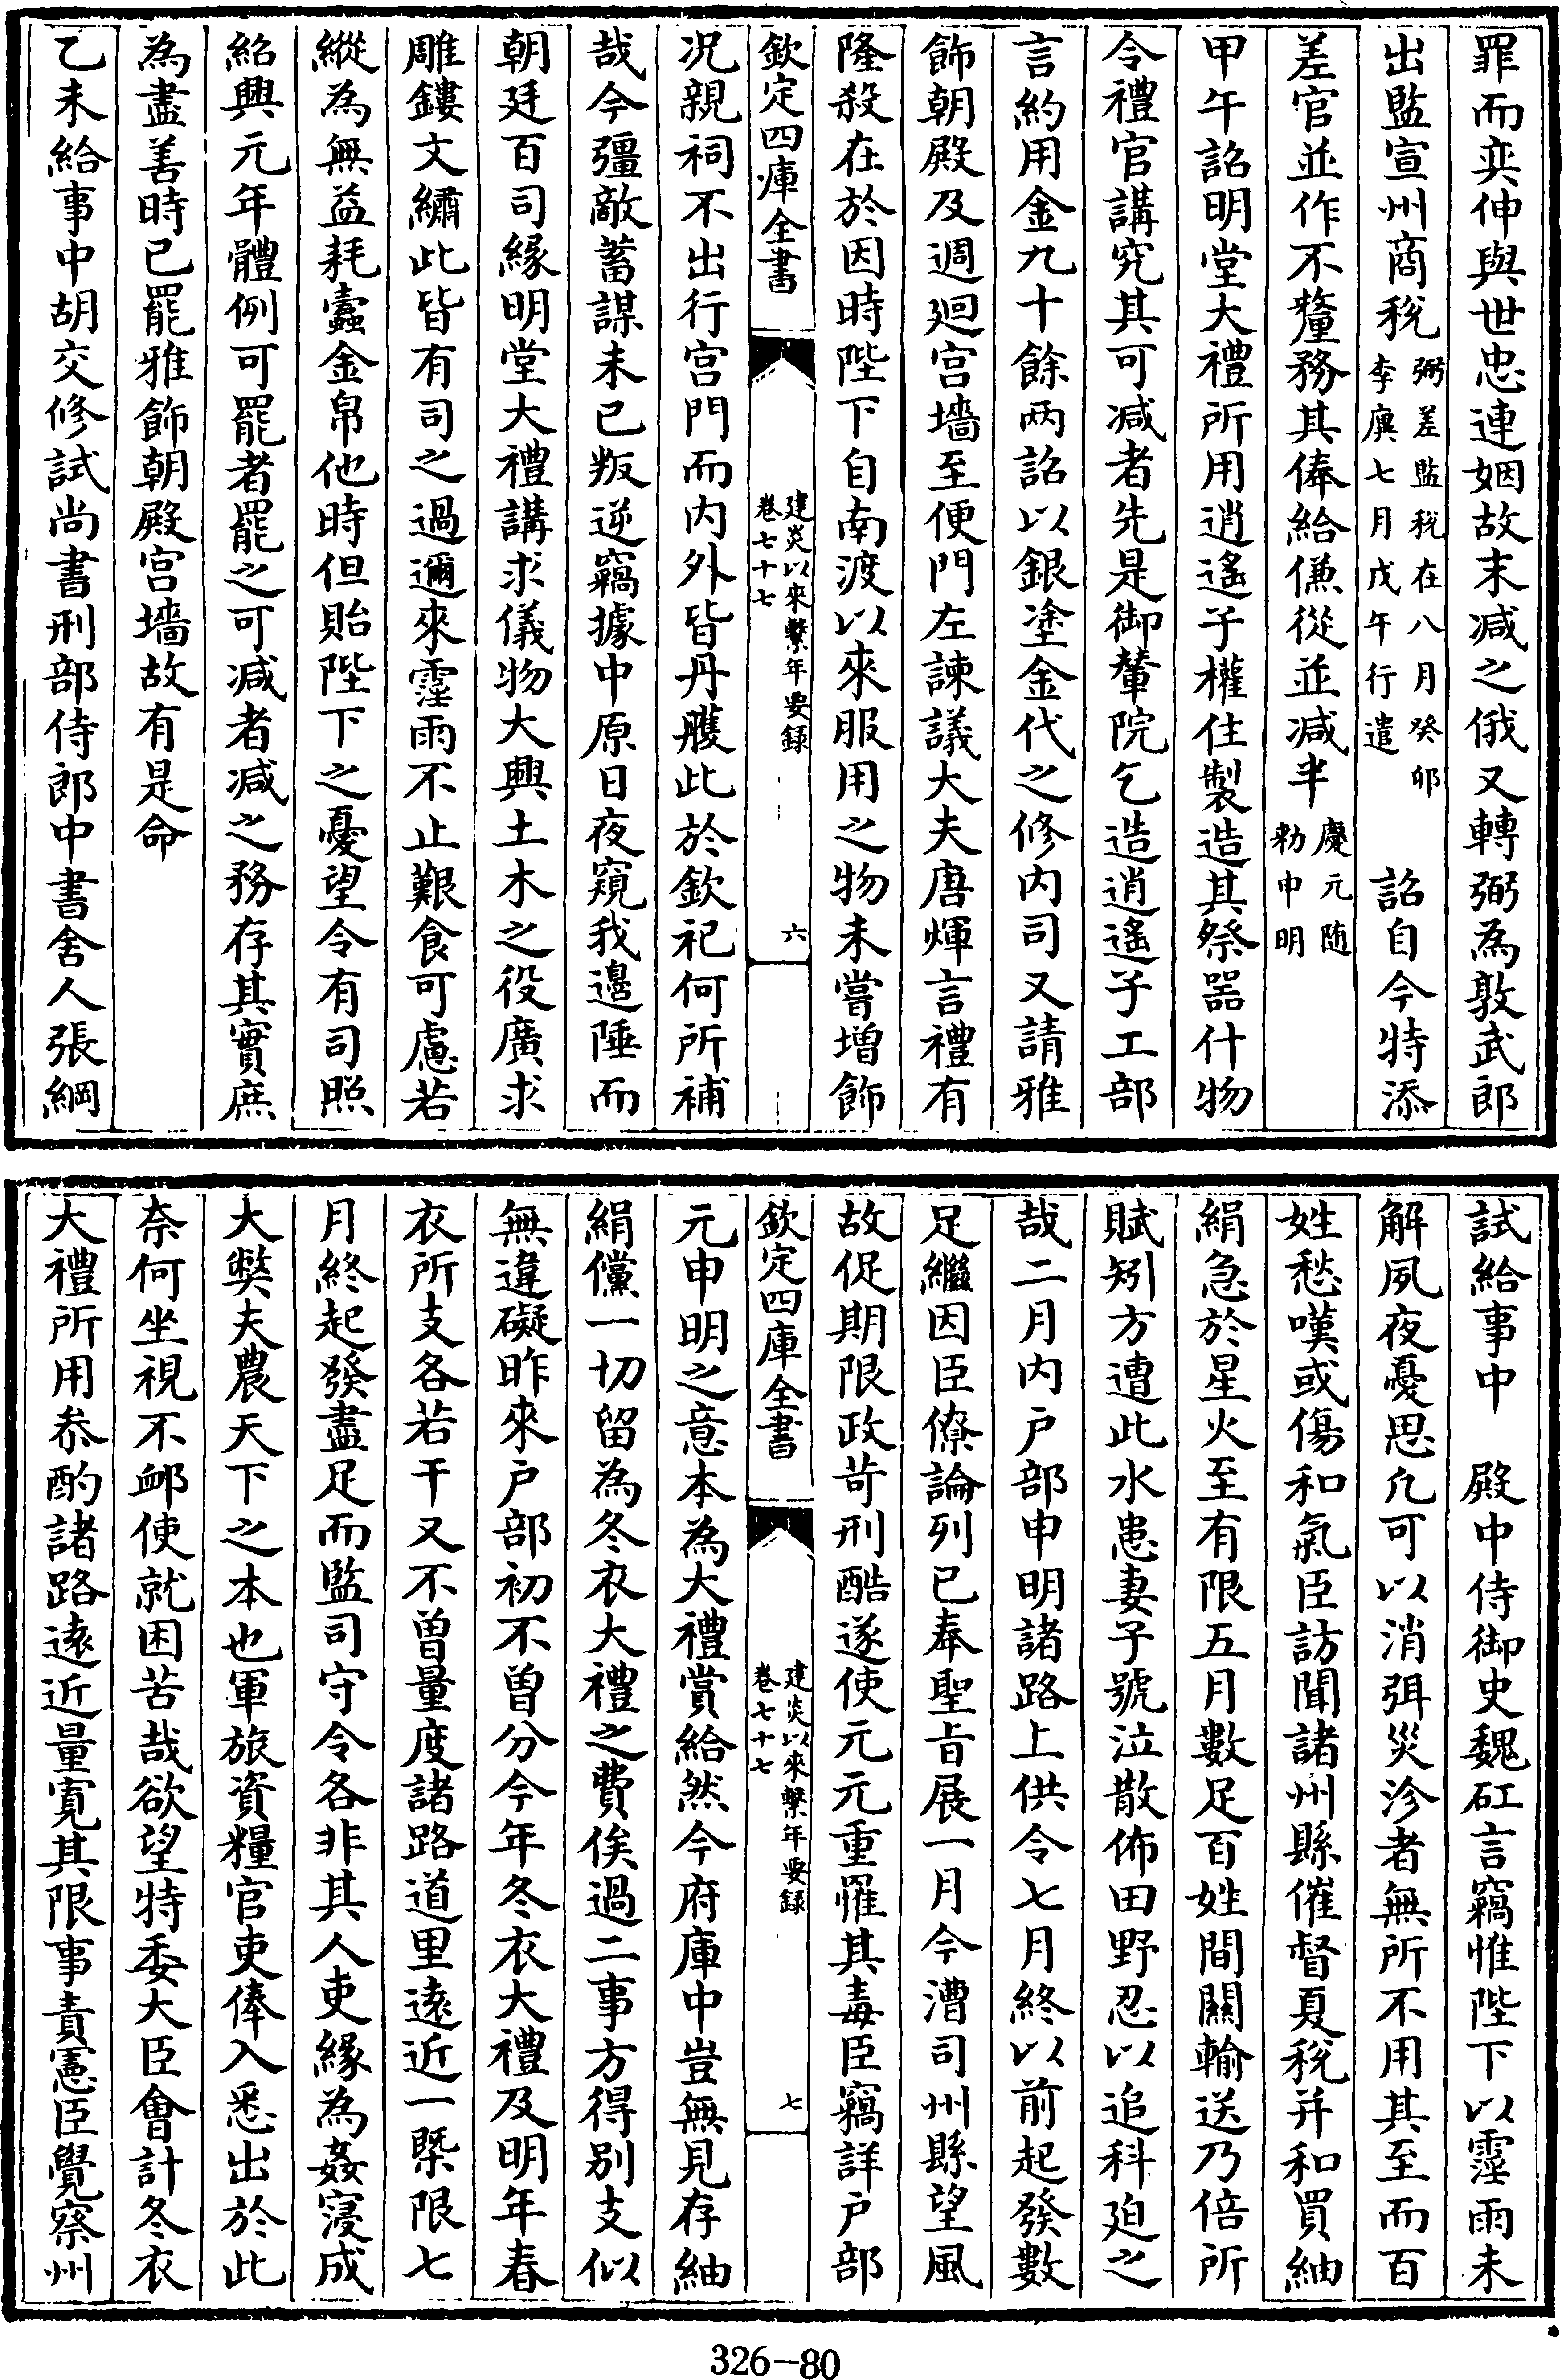 罪而奕伸與世忠連姻故末减之俄又轉弼為敦武郎
出監宣州商稅弼差監税在八月癸卯李廙七月戊午行遣　詔自今特添
差官並作不釐務其俸給傔從並减半慶元随勑申明
甲午詔明堂大禮所用逍遙子權住製造其祭噐什物
令禮官講究其可减者先是御輦院乞造逍遙子工部
言約用金九十餘两詔以銀塗金代之修内司又請雅
飾朝殿及週廻宫墻至便門左諫議大夫唐煇言禮有
隆殺在於因時陛下自南渡以來服用之物未嘗增飾
欽定四庫全書　建炎以來繫年要録卷七十七　六
况親祠不出行宫門而内外皆丹雘此於欽祀何所補
哉今彊敵蓄謀未已叛逆竊據中原日夜窺我邉陲而
朝廷百司緣明堂大禮講求儀物大興土木之役廣求
雕鏤文繡此皆有司之過邇來霪雨不止艱食可慮若
縱為無益耗蠹金帛他時但貽陛下之憂望令有司照
紹興元年體例可罷者罷之可减者减之務存其實庶
為盡善時已罷雅飾朝殿宫墻故有是命
乙未給事中胡交修試尚書刑部侍郎中書舍人張綱
試給事中　殿中侍御史魏矼言竊惟陛下以霪雨未
解夙夜憂思凢可以消弭災沴者無所不用其至而百
姓愁嘆或傷和氣臣訪聞諸州縣催督夏税并和買紬
絹急於星火至有限五月數足百姓間關輸送乃倍所
賦矧方遭此水患妻子號泣散佈田野忍以追科廹之
哉二月内户部申明諸路上供令七月終以前起發數
足繼因臣僚論列已奉聖旨展一月今漕司州縣望風
故促期限政苛刑酷遂使元元重罹其毒臣竊詳户部
欽定四庫全書　建炎以來繫年要録卷七十七　七
元申明之意本為大禮賞給然今府庫中豈無見存紬
絹儻一切留為冬衣大禮之費俟過二事方得别支似
無違礙昨來户部初不曽分今年冬衣大禮及明年春
衣所支各若干又不曽量度諸路道里逺近一槩限七
月終起發盡足而監司守令各非其人吏緣為姦寖成
大弊夫農天下之本也軍旅資糧官吏俸入悉出於此
奈何坐視不卹使就困苦哉欲望特委大臣會計冬衣
大禮所用叅酌諸路逺近量寛其限事責憲臣覺察州
326-80